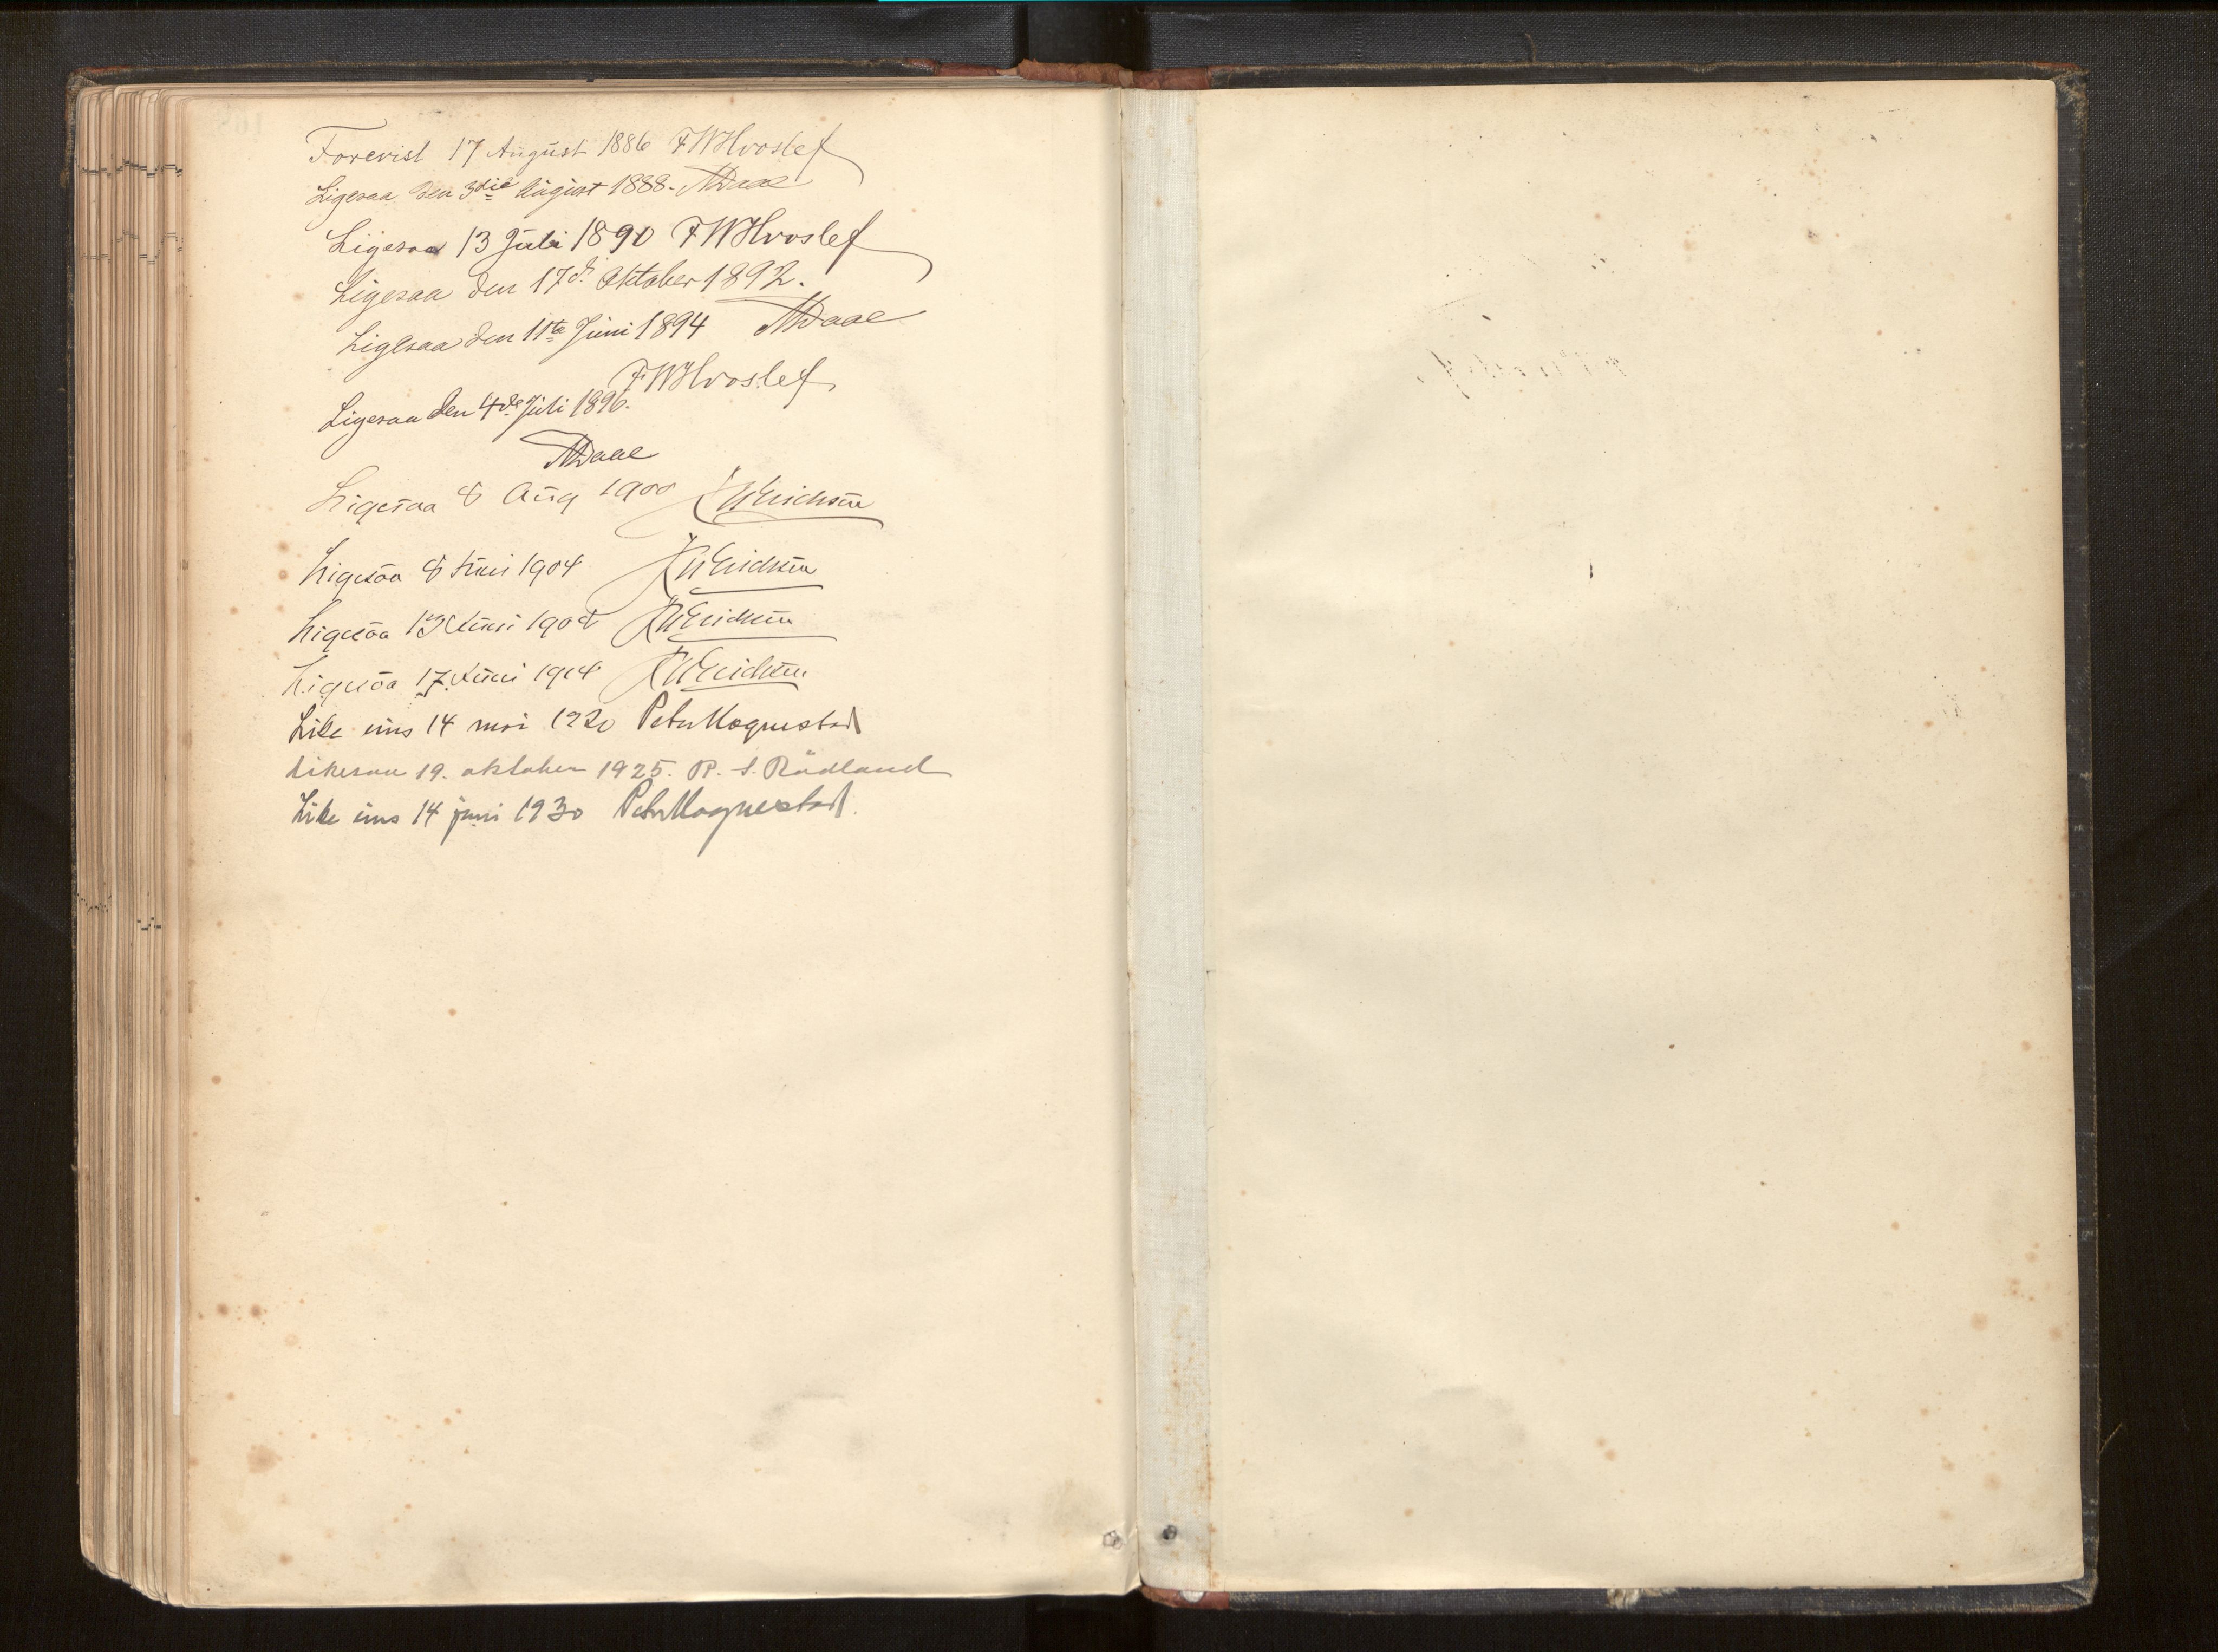 Forevist 17 August 1886 FWHvoslef
Ligesaa den 3die August 1888. MDaae
Ligesaa 13 Juli 1890 FWHvoslef
Ligesaa den 17de Oktober 1892.
MDaae
Ligesaa den 11te Juni 1894
FWHvoslef
Ligesaa den 4de Juli 1896.
MDaae
Ligesaa 8 Aug 1900 Erichsen
Ligesaa 8 Juni 1904 Erichsen
Ligesaa 13 Juni Erichsen
Ligesaa 17 Juni 1914 Erichsen
Like eins 14 mai 1920 Peter Hognestad
Likesaa 19. oktober 1925. P. S. Rödland
Like eins 14 juni 1930 Peter Hognestad.